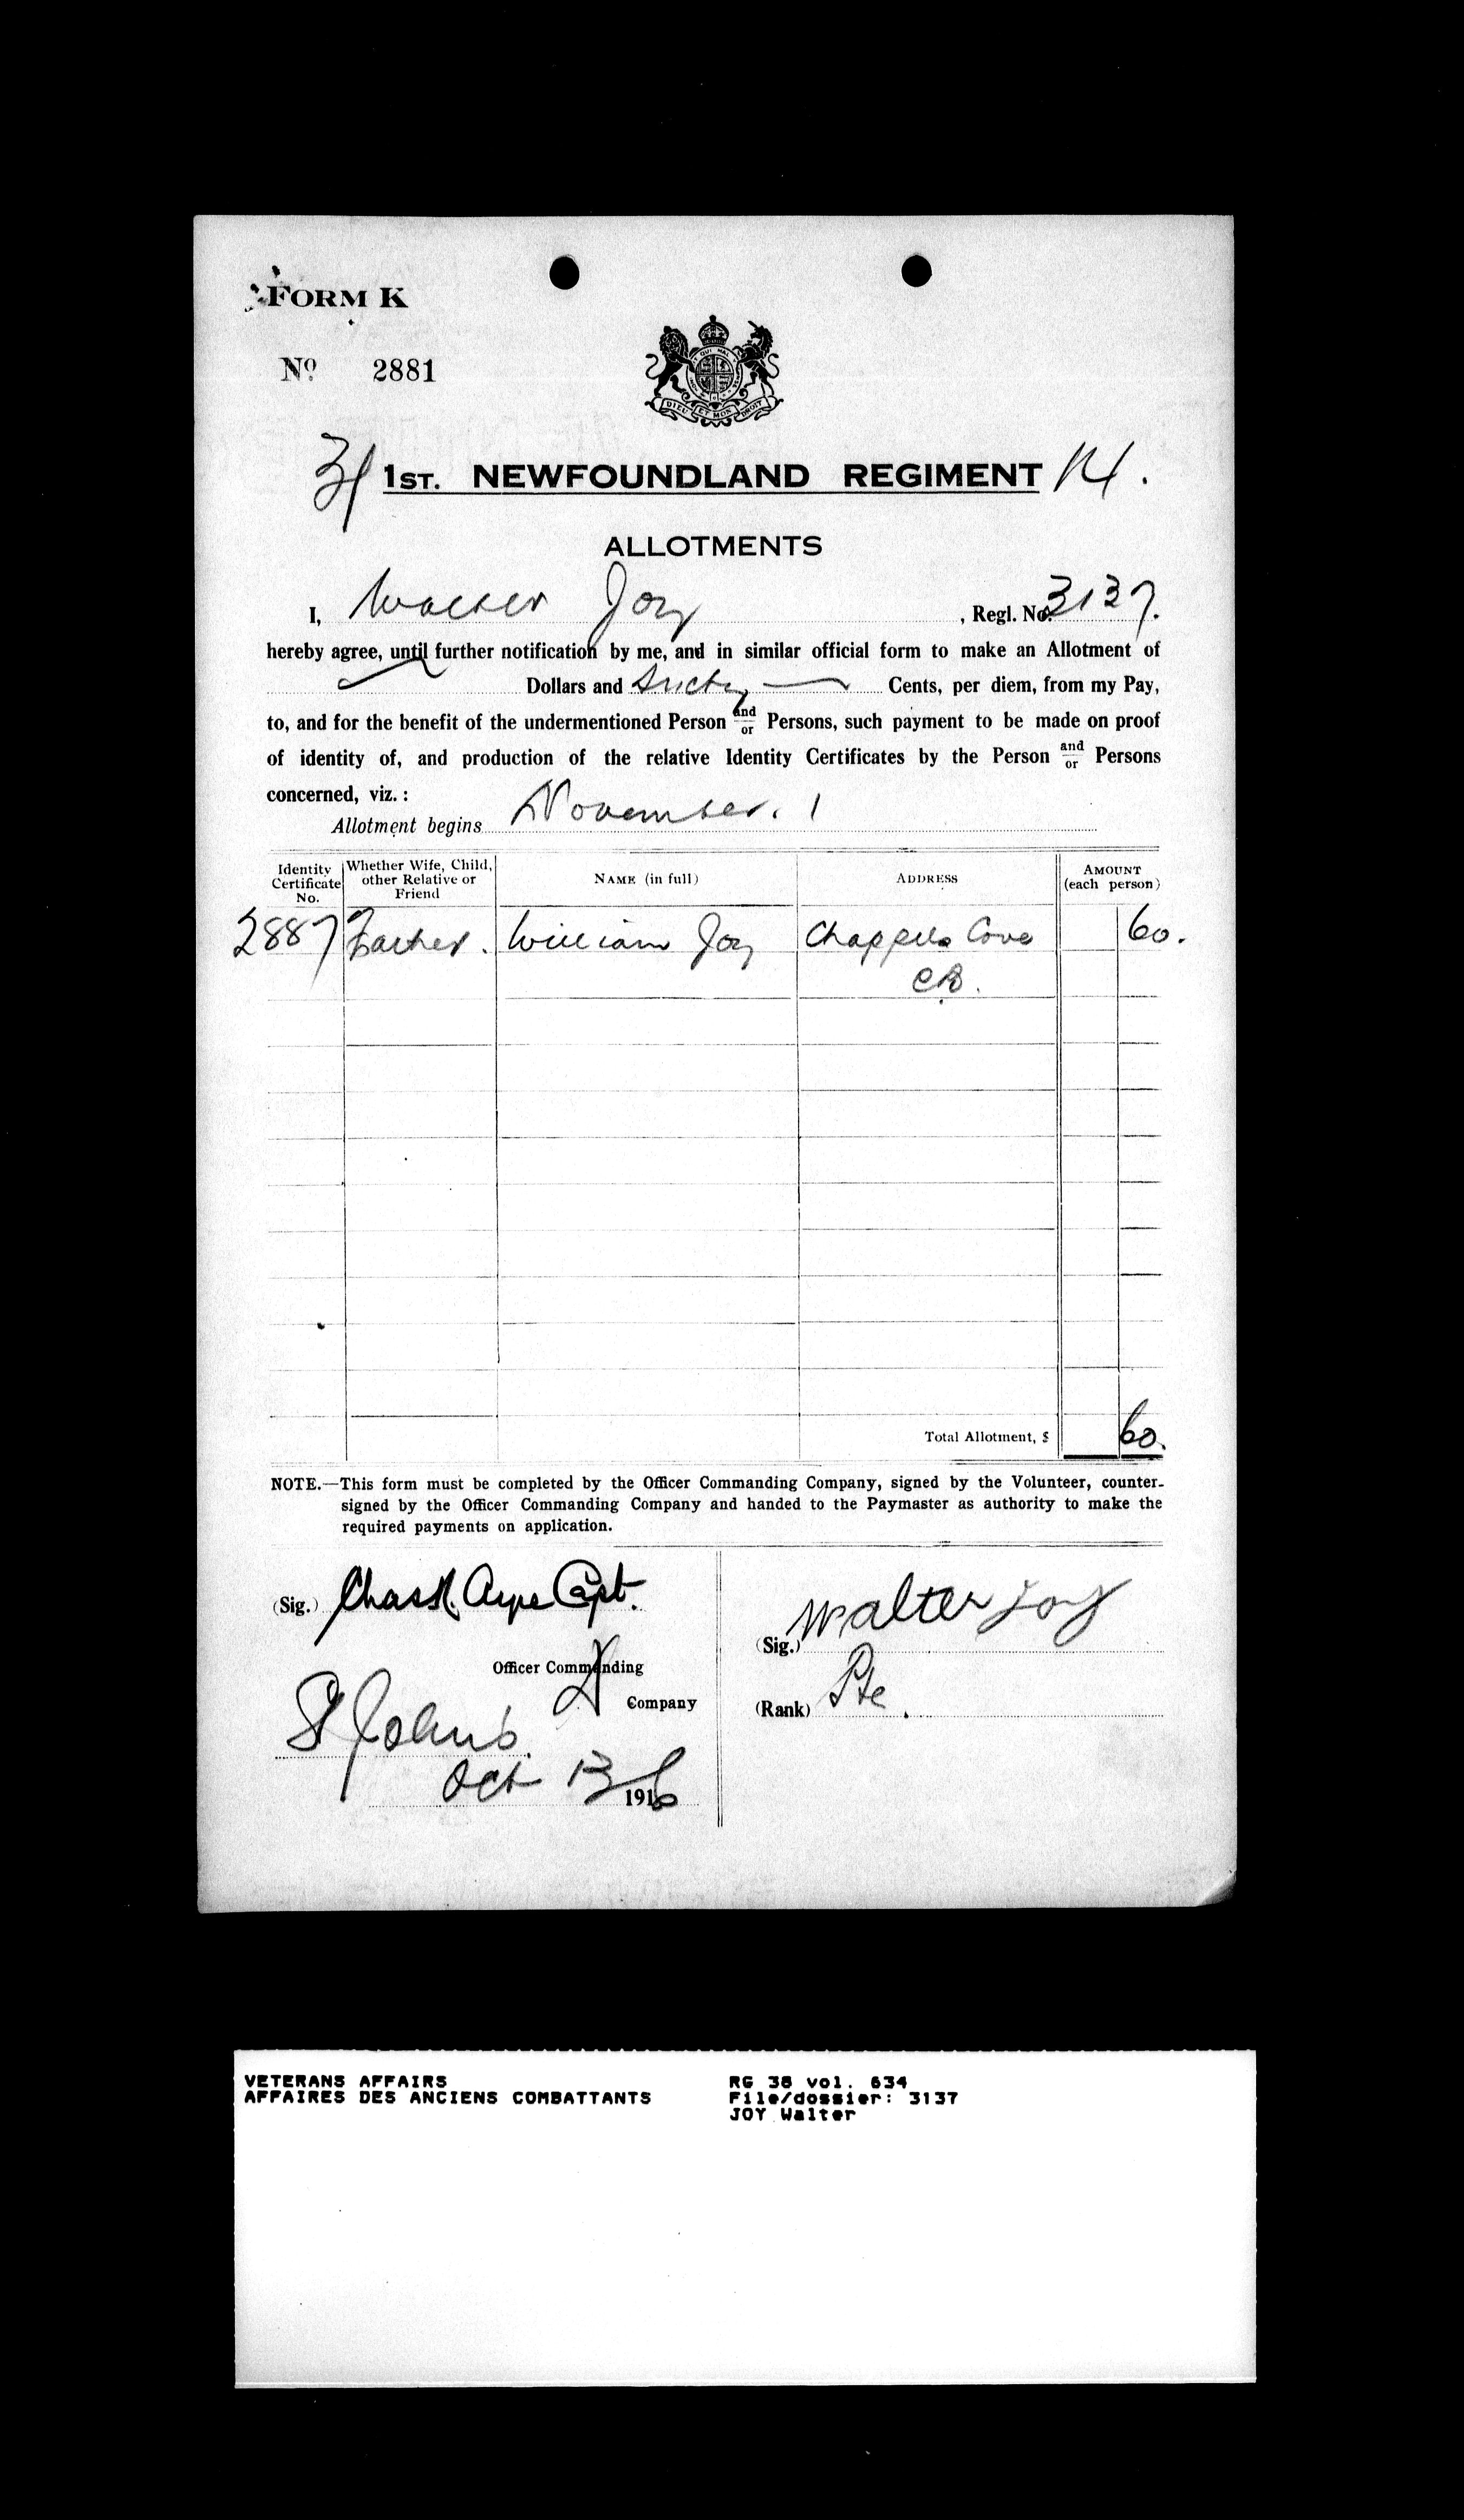 FORM K
No. 2881
1ST. NEWFOUNDLAND REGIMENT
ALLOTMENTS
I, Walter Joy, Regl. No. 3137.
hereby agree, until further notification by me, and in similar official form to make an Allotment of
Dollars and Sixty — Cents, per diem, from my Pay,
to, and for the benefit of the undermentioned Person and/or Persons, such payment to be made on proof
of identity of, and production of the relative Identity Certificates by the Person and/or Persons
concerned, viz. :
Allotment begins November. 1
Identity Certificate No. Whether Wife, Child, other Relative or Friend NAME (in full) ADDRESS AMOUNT (each person)
2887 Father. William Joy Chappells Cove 60.
CB.
Total Allotment, $ 60.
NOTE.—This form must be completed by the Officer Commanding Company, signed by the Volunteer, counter-
signed by the Officer Commanding Company and handed to the Paymaster as authority to make the
required payments on application.
(Sig.) Chas R. Ayre Capt.
Officer Commanding
Company
St Johns
Oct 13 1916
(Sig.) Walter Joy
(Rank) Pte.
VETERANS AFFAIRS
AFFAIRES DES ANCIENS COMBATTANTS
RG 38 vol. 634
File/dossier: 3137
JOY Walter